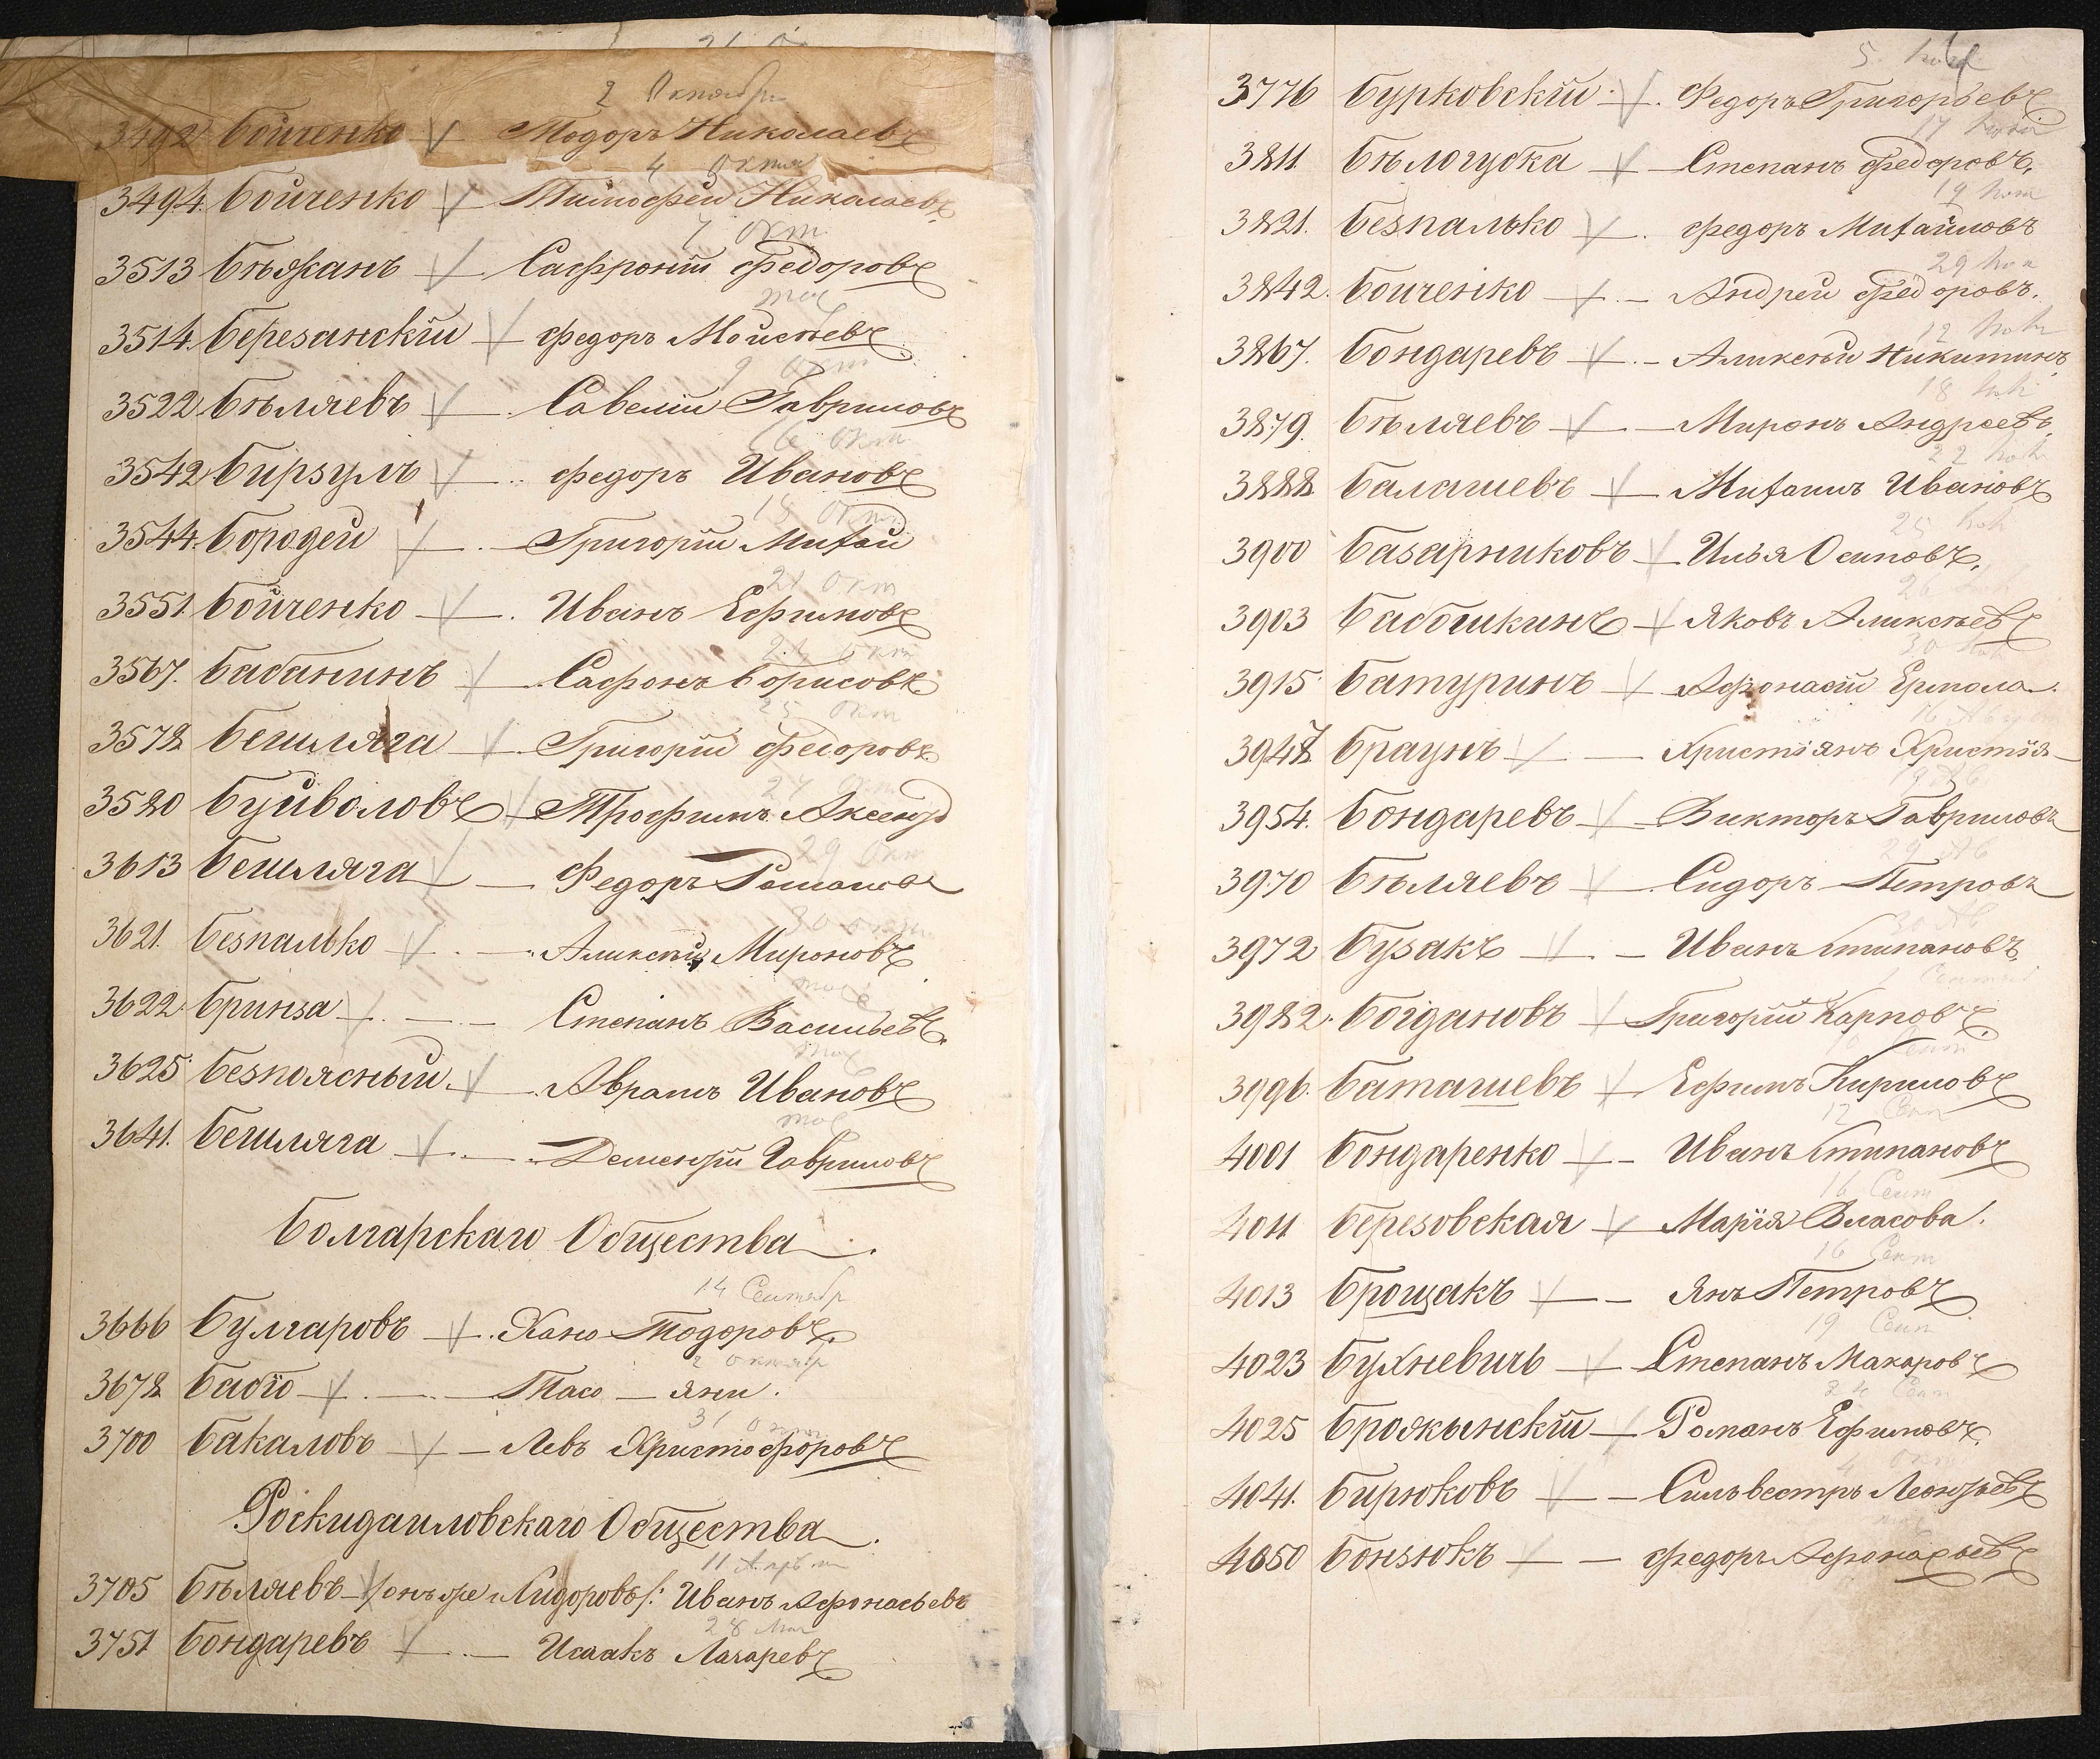 2 Октября
3492 Бойченко V Тодоръ Николаевъ
4 Октя
3494. Бойченко V Тимофей Николаевъ
7 Окт
3513 Бѣжанъ V Сафроній Федоровъ
тоже
3514. Березанскій V Федоръ Моисѣевъ
9 Окт
3522 Бѣляевъ V Савелій Гавриловъ
16 Окт.
3542 Бирзулъ V Федоръ Ивановъ
18 Окт
3544. Бородей V Григорій Михай
21 Окт
3551. Бойченко V Иванъ Ефимовъ
Окт
3567. Бабанинъ V Сафонъ Борисовъ
25 Окт
3578 Бешляга V Григорій Федоровъ
27 Окт
3580 Буйволовъ V Трофимъ Аксенд
29 Окт
3613 Бешляга V Федоръ Романовъ
30 Окт
3621. Безпалько V Аликсѣй Мироновъ
3622. Бринза V Степанъ Васильевъ
тоже
3625 Безпоясный V Аврамъ Ивановъ
тоже
3641. Бешляга V Дементій Гавриловъ
Болгарскаго Общества.
14 Сентябр
3666 Булгаровъ V Хано Тодоровъ.
2 Октябр
3678 Бабіо V Тасо — Яни.
31 Окт
3700 Бакаловъ V Левъ Христофоровъ
Роскидаиловскаго Общества.
11
3705 Бѣляевъ V /: онъ же Сидоровъ :/ Иванъ Афонасьевъ
28
3751 Бондаревъ V Исаакъ Лазаревъ
5
3776 Бурковскій V Федоръ Григорьевъ
17
3811. Бѣлогубка V Степанъ Федоровъ.
19
3821. Безпалько V Федоръ Михайловъ
29
3842. Бойченко V Андрей Федоровъ.
12
3867. Бондаревъ V Аликсѣй Никитинъ
18
3879. Бѣляевъ V Миронъ Андреевъ.
22
3888 Балашевъ V Михаилъ Ивановъ
25
3900 Базарниковъ V Илья Осиповъ.
26
3903 Бабошкинъ V Яковъ Аликсѣевъ
30
3915 Батуринъ V Афонасій Ермола.
16
3947 Браунъ V Христіянъ Христія
3954. Бондаревъ V Викторъ Гавриловъ
29
3970 Бѣляевъ V Сидоръ Петровъ
3972 Бузакъ V Иванъ Стипановъ.
3982. Богдановъ V Григорій Карповъ.
3996. Баташевъ V Ефимъ Кириловъ
12 Сен
4001 Бондаренко V Иванъ Стипановъ
16 Сент
4011 Березовская V Марія Власова.
16 Сент
4013 Брощакъ V Янъ Петровъ
19 Сент
4023 Бухневичъ V Степанъ Макаровъ
24 Сен
4025 Брожкынскій V Романъ Ефимовъ.
4041. Бирюковъ V Сильвестръ Леонтьевъ
4050 Бонзюкъ V Федоръ Афонасьевъ